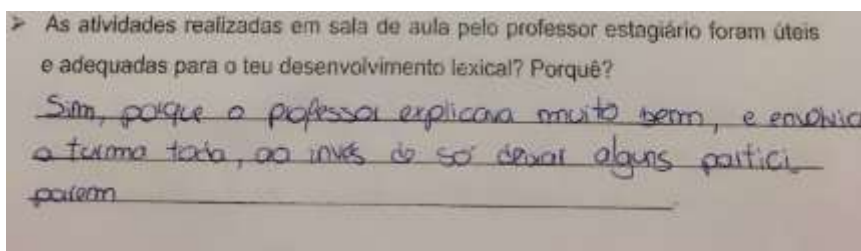 ➤ As atividades realizadas em sala de aula pelo professor estagiário foram úteis
e adequadas para o teu desenvolvimento lexical? Porquê?
Sim, porque o professor explicava muito bem, e envolvia
a turma toda, ao invés de só deixar alguns partici
parem